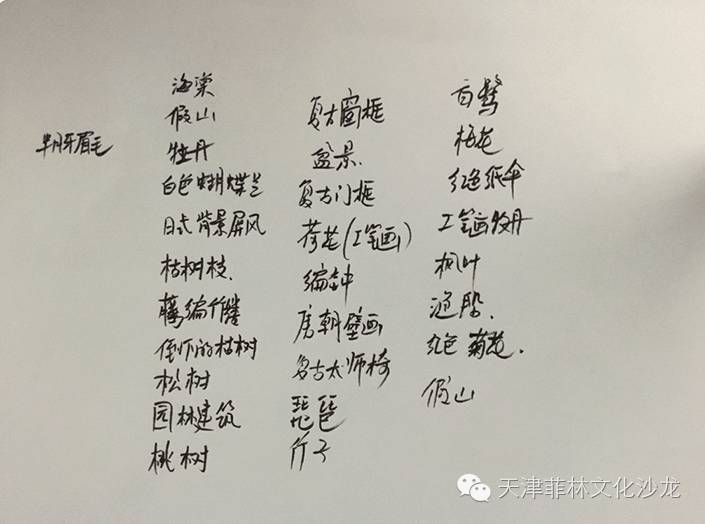 半月牙眉毛
海棠
假山
牡丹
白色蝴蝶兰
日式背景屏风
枯树枝.
藤编竹
倒吓的枯树
松树
园林建筑
桃树
复古窗框
盆景.
复古门框
荷花(工笔画)
编钟
唐朝壁画
名古太师椅
琵琶
竹子
桃花
红色纸伞
工笔画牡丹
枫叶
红色 菊花.
假山
天津菲林文化沙龙